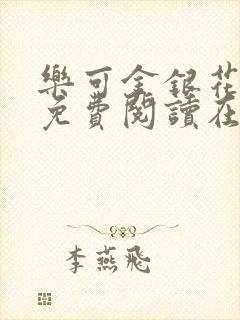 樂可金銀花
免費閱讀在
李燕飛